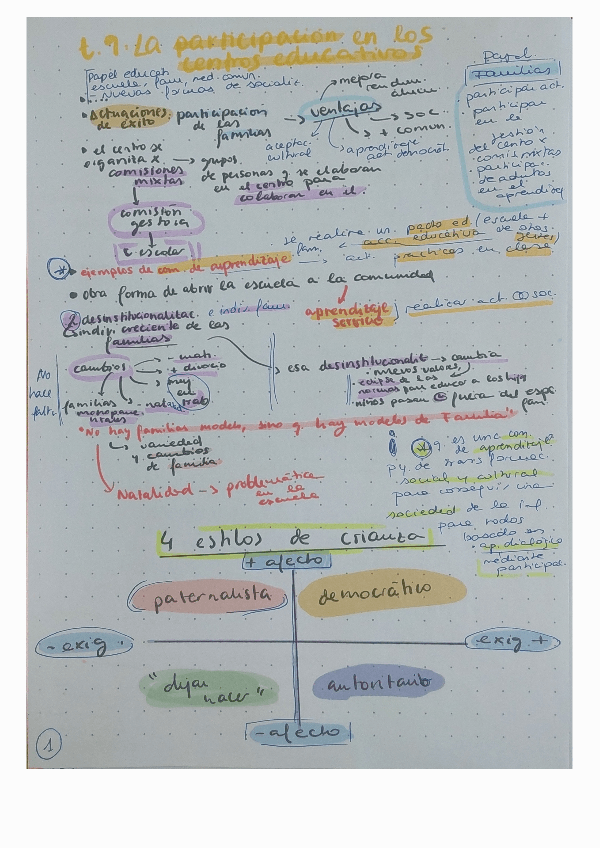 t.9. La participación en los
centros educativos
Papel educat.
escuela, fam, red. comun.
- Nuevas formas de socializ.
• Actuaciones participación → ventajas
de éxito de las
familias
→ mejora
rendim.
→ soc.
→ + comun.
aceptac.
cultural
aprendizaje
act. democrát.
Papel
Familias
participar act.
participar
en la
gestión
del centro x
comis. mixtas
participa.
de adultos
en el
aprendizaj
• el centro se
organiza x → grupos
comisiones de personas q se elaboran
mixtas en el centro para
colaborar en él.
comisión
gestora
c. escolar
se realiza un pacto ed. (escuela +
fam.
• ejemplos de com. de aprendizaje → act. prácticas en clase
• otra forma de abrir la escuela a la comunidad
aprendizaje
servicio
realizar act. soc.
desinstitucionalizac. e indiv. fam
creciente de las
familias
No
hace
falta
cambios
- mat.
+ divorcio
muj
en
trab
familias
monoparen
tales
- natal
esa desinstitucionaliz → cambia
• nuevos valores,
normas para educar a los hijos
• niños pasan + fuera del esp.
fam.
"No hay familias modelo, sino q hay modelos de Familia"
→ variedad
y cambios
de familia
Natalidad → problemática
en la
escuela
es una com.
de aprendizaje
py. de transformac.
social y cultural
para conseguir una
sociedad de la inf.
para todos
basado en
ap. dialógico
mediante
participac.
4 estilos de crianza
+ afecto
paternalista democrático
- exig. exig +
"dejar
hacer" autoritario
- afecto
1